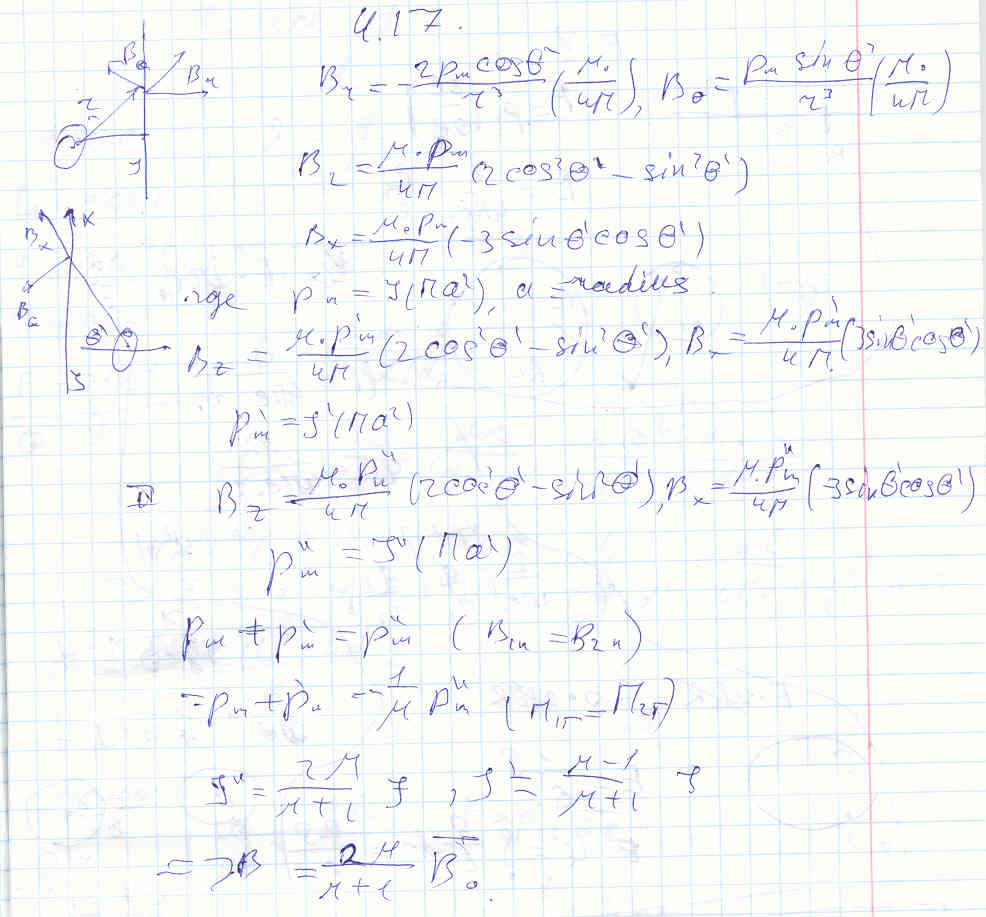 4.17.
B_r = -2p_m cosθ'/r³ (μ₀/4π), B_θ = p_m sinθ'/r³ (μ₀/4π)
B_z = μ₀p_m/4π (2cos²θ' - sin²θ')
B_x = μ₀p_m/4π (-3sinθ'cosθ')
где p_m = J(πa²), a = radius.
B_z = μ₀p'_m/4π (2cos²θ' - sin²θ'), B_x = μ₀p'_m/4π (3sinθ'cosθ')
p'_m = J'(πa²)
II B_z = μ₀p''_m/4π (2cos²θ' - sin²θ'), B_x = μ₀p''_m/4π (-3sinθ'cosθ')
p''_m = J''(πa²)
p_m + p'_m = p''_m (B_1n = B_2n)
= p_m + p'_m = -1/μ p''_m (H_1τ = H_2τ)
J'' = 2μ/μ+1 J, J' = μ-1/μ+1 J
=> B = 2μ/μ+1 B₀